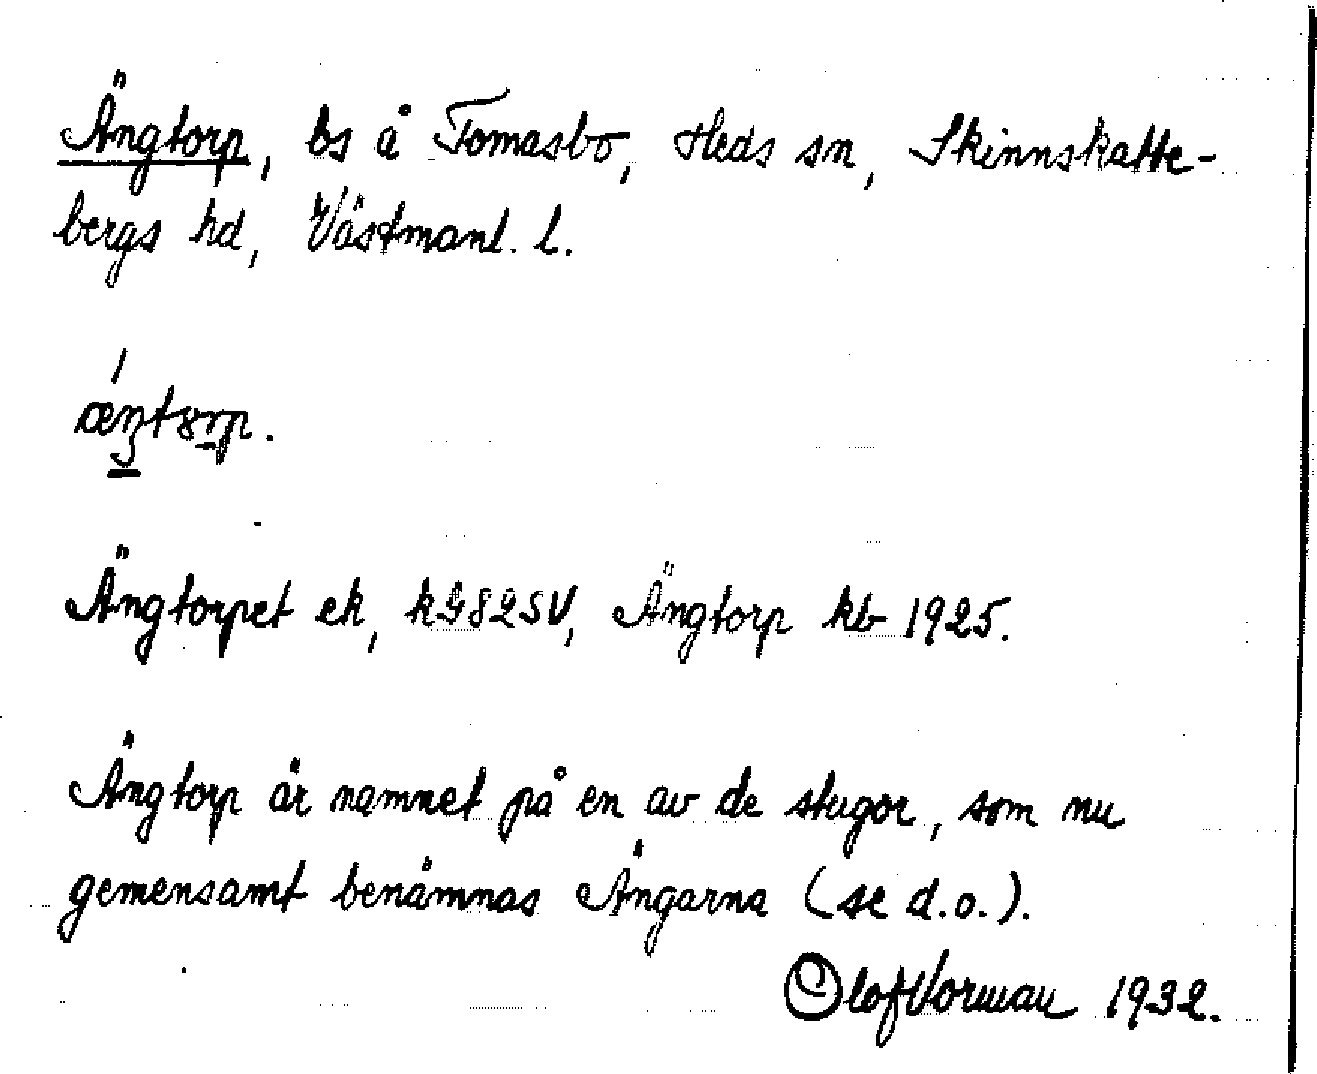 Ängtorp, bs å Tomasbo, Heds sn, Skinnskatte-
bergs hd, Västmanl. l.
Ängtorpet ek, kG82SV, Ängtorp kb 1925.
Ängtorp är namnet på en av de stugor, som nu
gemensamt benämnas Ängarna (se d.o.).
Olof Vorman 1932.